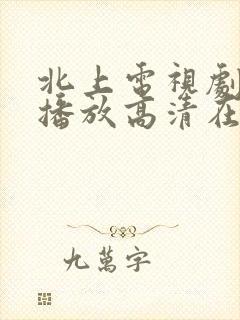 北上電視劇
播放高清在
九萬字